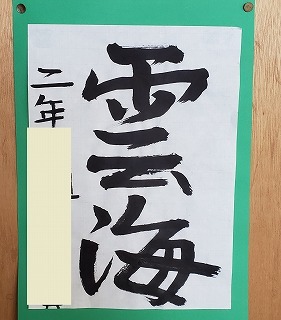 雲海
二年